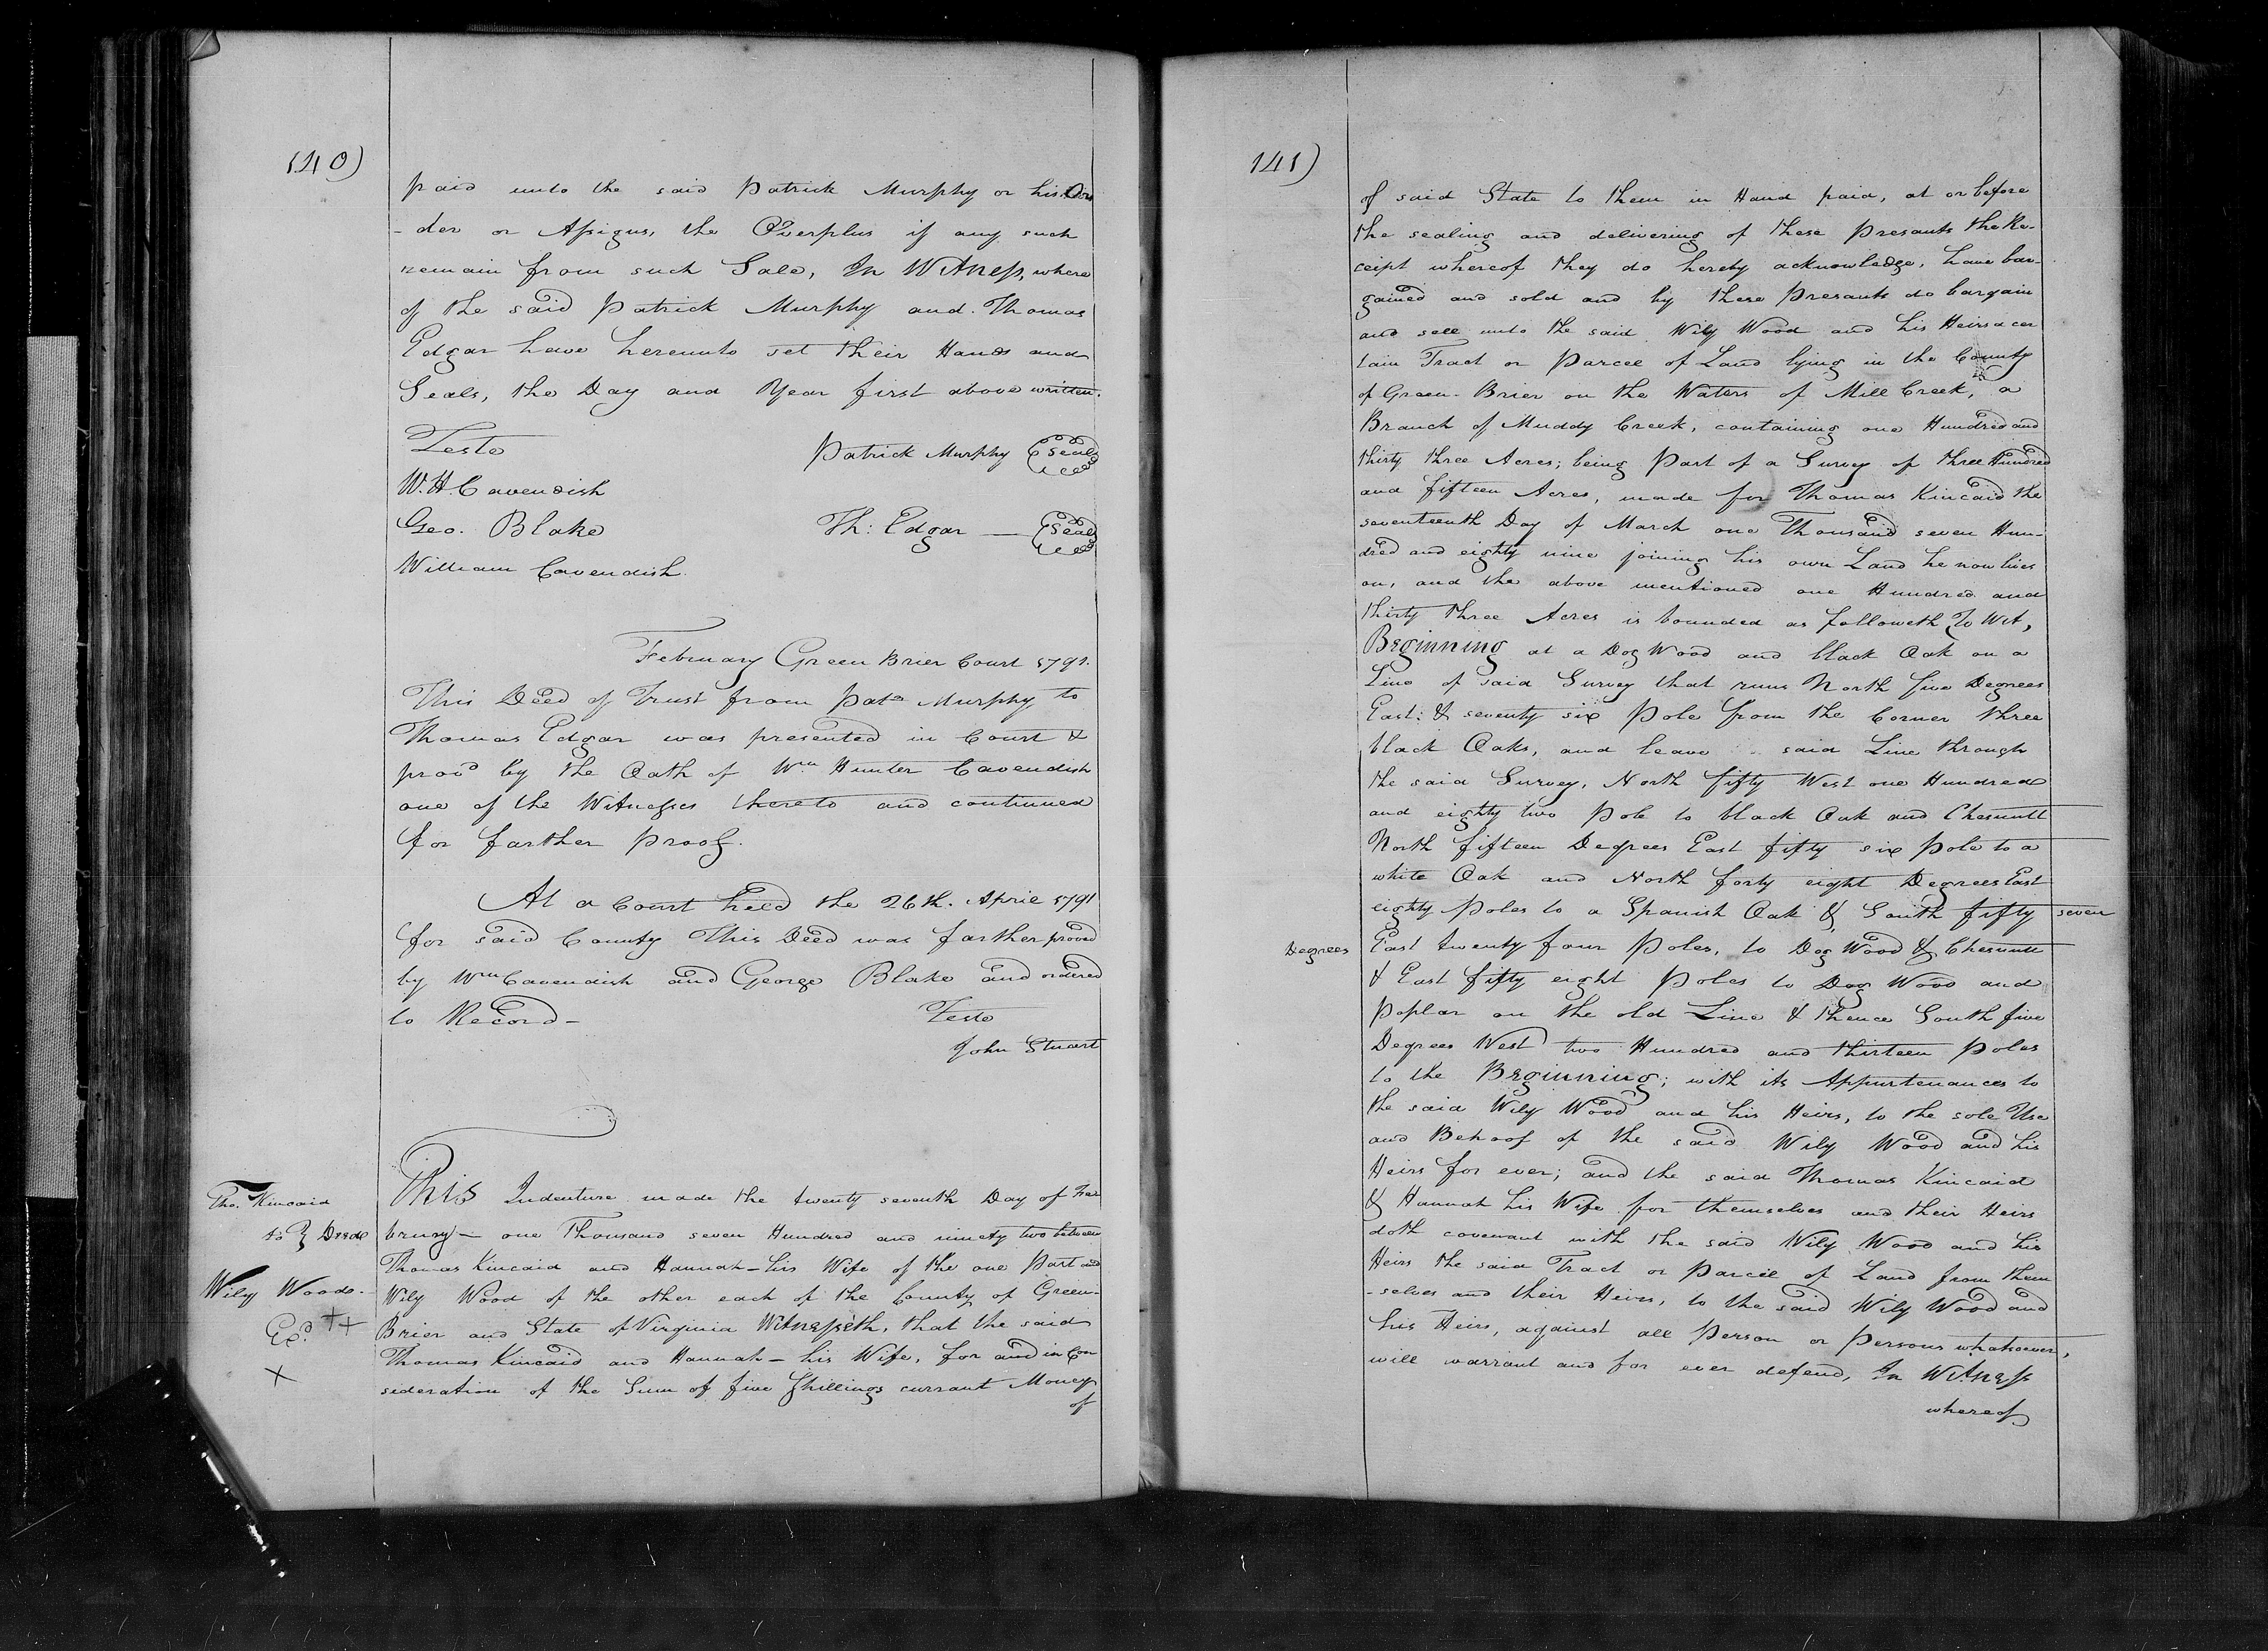 140)
paid unto the said Patrick Murphy or his Or
-der or Assigns, the Overplus if any such
remain from such Sale, In Witness, where
of the said Patrick Murphy and Thomas
Edgar have hereunto set their Hands and
Seals, the Day and Year first above written.
Teste
Patrick Murphy Seal
W. H. Cavendish
Geo. Blake
Th: Edgar — Seal
William Cavendish
February Green Brier Court 1791.
This Deed of Trust from Pat. Murphy to
Thomas Edgar was presented in Court &
prov'd by the Oath of Wm Hunter Cavendish
one of the Witnesses thereto and continued
for farther Proof.
At a Court held the 26th. April 1791
for said County This Deed was farther proved
by Wm Cavendish and George Blake and ordered
to Record—
Teste
John Stuart
Tho. Kincaid
to } Deed
Wily Woods.
Exd. ++
X
This Indenture made the twenty seventh Day of Feb
bruary — one Thousand seven Hundred and ninety two between
Thomas Kincaid and Hannah — his Wife of the one Part and
Wily Wood of the other each of the County of Green-
Brier and State of Virginia Witnesseth, that the said
Thomas Kincaid and Hannah — his Wife, for and in Con
sideration of the Sum of five Shillings currant Money
of
141)
of said State to them in Hand paid, at or before
the sealing and delivering of these Presants the Re-
ceipt whereof they do hereby acknowledge, have bar-
gained and sold and by these Presants do bargain
and sell unto the said Wily Wood and his Heirs a cer
tain Tract or Parcel of Land lying in the County
of Green-Brier on the Waters of Mill Creek, a
Branch of Muddy Creek, containing one Hundred and
thirty three Acres; being Part of a Survey of three Hundred
and fifteen Acres, made for Thomas Kincaid the
seventeenth Day of March one Thousand seven Hun-
dred and eighty nine joining his own Land he now lives
on, and the above mentioned one Hundred and
thirty three Acres is bounded as followeth To Wit,
Beginning at a Dog Wood and black Oak on a
Line of said Survey that runs North five Degrees
East: & seventy six Pole from the Corner three
black Oaks, and leave said Line through
the said Survey, North fifty West one Hundred
and eighty two Pole to black Oak and Chesnutt
North fifteen Degrees East fifty six Pole to a
white Oak and North forty eight Degrees East
eighty Poles to a Spanish Oak & South fifty seven
Degrees East twenty four Poles, to Dog Wood & Chesnutt
& East fifty eight Poles to Dog Wood and
Poplar on the old Line & thence South five
Degrees West two Hundred and thirteen Poles
to the Beginning; with its Appurtenances to
the said Wily Wood and his Heirs, to the sole Use
and Behoof of the said Wily Wood and his
Heirs for ever; and the said Thomas Kincaid
& Hannah his Wife for themselves and their Heirs
doth covenant with the said Wily Wood and his
Heirs the said Tract or Parcel of Land from them
-selves and their Heirs, to the said Wily Wood and
his Heirs, against all Person or Persons whatsoever,
will warrant and for ever defend, In Witness
whereof